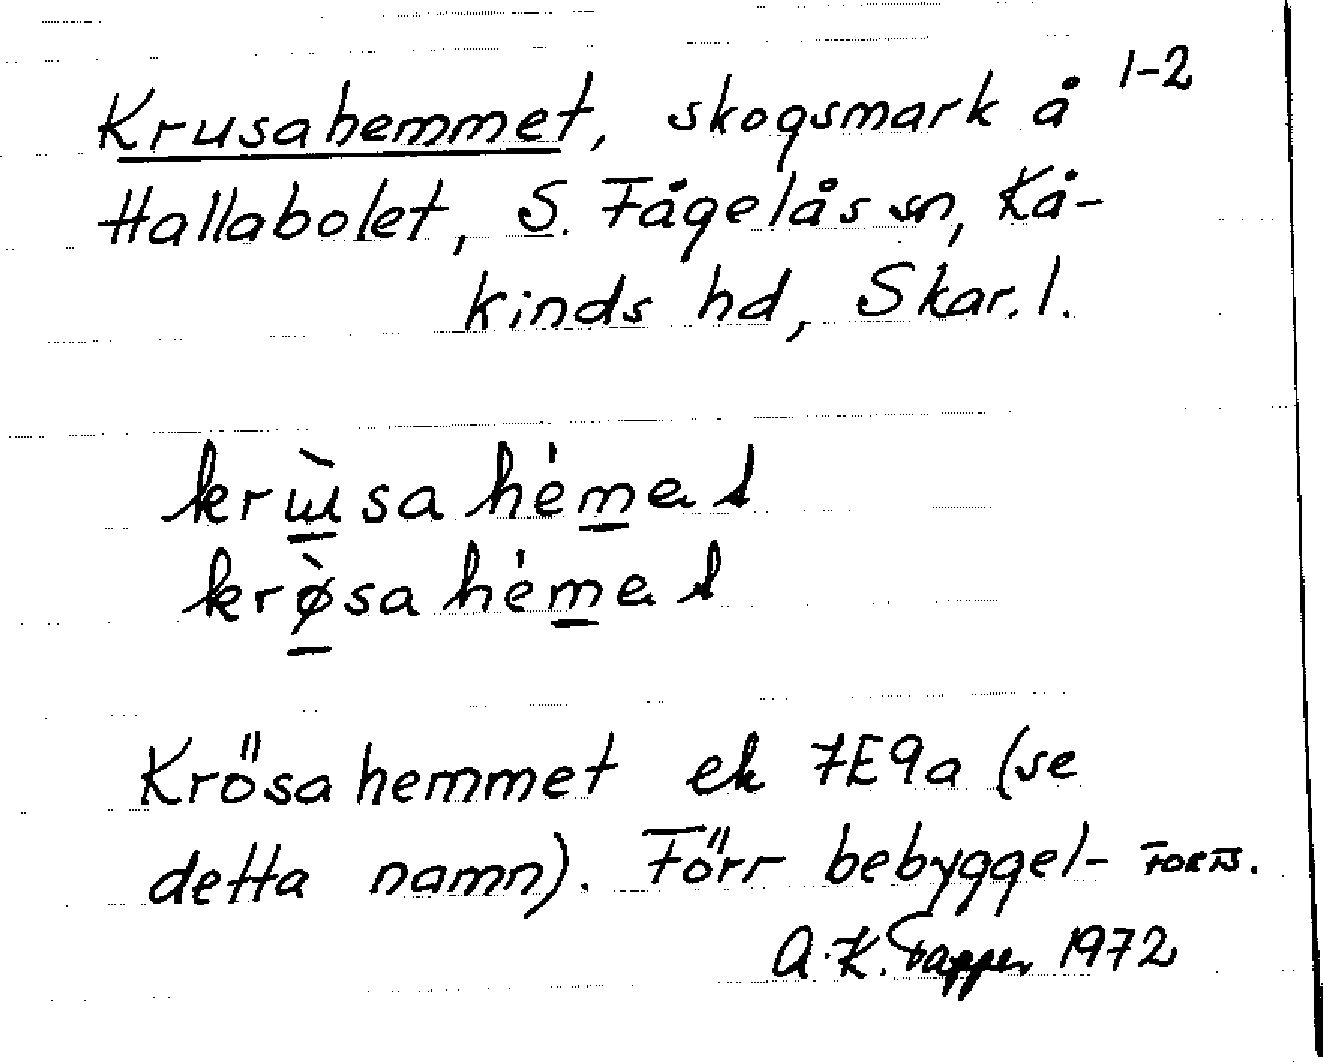 Krusahemmet, skogsmark å 1-2
Hallabolet, S. Fågelås sn, Kå-
kinds hd, Skar. l.
krɯ̀sa hémət
krø̀sa hémət
Krösahemmet ek 7E9a (se
detta namn). Förr bebyggel- FORTS.
A.K. Tapper 1972